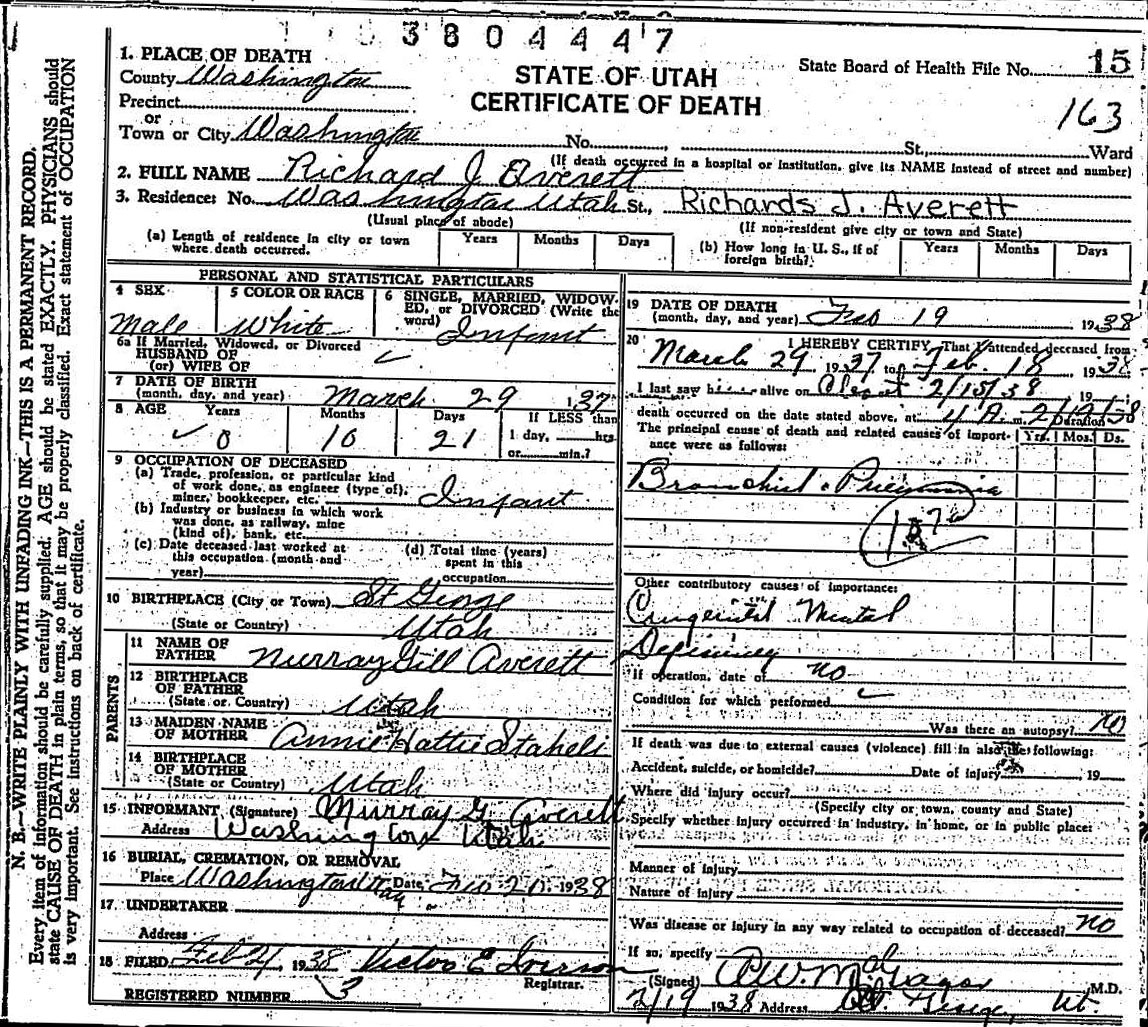 3804447
1. PLACE OF DEATH
County Washington
STATE OF UTAH
State Board of Health File No. 15
Precinct
CERTIFICATE OF DEATH
163
or
Town or City Washington No. St., Ward
(If death occurred in a hospital or institution, give its NAME instead of street and number)
2. FULL NAME Richard J Averett
3. Residence: No. Washington Utah St., Richards J. Averett
(Usual place of abode) (If non-resident give city or town and State)
(a) Length of residence in city or town where death occurred. Years Months Days
(b) How long in U. S., if of foreign birth? Years Months Days
PERSONAL AND STATISTICAL PARTICULARS
4 SEX Male
5 COLOR OR RACE White
6 SINGLE, MARRIED, WIDOWED, or DIVORCED (Write the word) Infant
6a If Married, Widowed, or Divorced
HUSBAND OF
(or) WIFE OF
7 DATE OF BIRTH
(month, day, and year) March 29 1937
8 AGE Years Months Days If LESS than
0 10 21 1 day, hrs.
or min.?
9 OCCUPATION OF DECEASED
(a) Trade, profession, or particular kind
of work done, as engineer (type of),
miner, bookkeeper, etc. Infant
(b) Industry or business in which work
was done, as railway, mine
(kind of), bank, etc.
(c) Date deceased last worked at
this occupation (month and
year)
(d) Total time (years)
spent in this
occupation
10 BIRTHPLACE (City or Town) St George
(State or Country) Utah
PARENTS
11 NAME OF
FATHER Murray Gill Averett
12 BIRTHPLACE
OF FATHER
(State or Country) Utah
13 MAIDEN NAME
OF MOTHER Annie Hattie Staheli
14 BIRTHPLACE
OF MOTHER
(State or Country) Utah
15 INFORMANT (Signature) Murray G. Averett
Address Washington Utah
16 BURIAL, CREMATION, OR REMOVAL
Place Washington Utah Date Feb 20 1938
17. UNDERTAKER
Address
18 FILED Feb 21 1938 Victor E Iverson
Registrar.
REGISTERED NUMBER 3
19 DATE OF DEATH
(month, day, and year) Feb 19 1938
20 I HEREBY CERTIFY, That I attended deceased from
March 29 1937 to Feb. 18 1938
I last saw h alive on About 2/15/38 19
death occurred on the date stated above, at 4 A. m. 2/19/38
Duration
The principal cause of death and related causes of importance were as follows: Yrs. Mos. Ds.
Bronchial Pneumonia
107a
Other contributory causes of importance:
Congenital Mental
Deficiency
If operation, date of no
Condition for which performed
Was there an autopsy? no
If death was due to external causes (violence) fill in also the following:
Accident, suicide, or homicide? Date of injury 19
Where did injury occur?
(Specify city or town, county and State)
Specify whether injury occurred in industry, in home, or in public place:
Manner of injury
Nature of injury
Was disease or injury in any way related to occupation of deceased? no
If so, specify
(Signed) M.D.
2/19 1938 Address St. George, Ut.
N. B.—WRITE PLAINLY WITH UNFADING INK—THIS IS A PERMANENT RECORD.
Every item of information should be carefully supplied. AGE should be stated EXACTLY. PHYSICIANS should
state CAUSE OF DEATH in plain terms, so that it may be properly classified. Exact statement of OCCUPATION
is very important. See instructions on back of certificate.